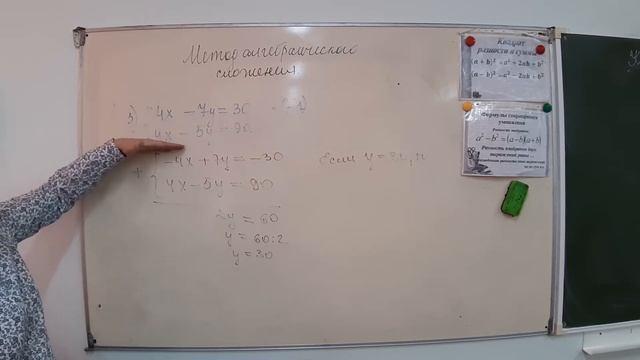 Метод алгебраического
сложения
3) 4x - 7y = 30 (-1)
4x - 5y = 90
-4x + 7y = -30
+
4x - 5y = 90
2y = 60
y = 60:2
y = 30
Если y =
Квадрат
разности и суммы
(a + b)² = a² + 2ab + b²
(a - b)² = a² - 2ab + b²
Формулы сокращенного
умножения
Разность квадратов
a² - b² = (a-b)(a+b)
Разность квадратов двух
выражений равна